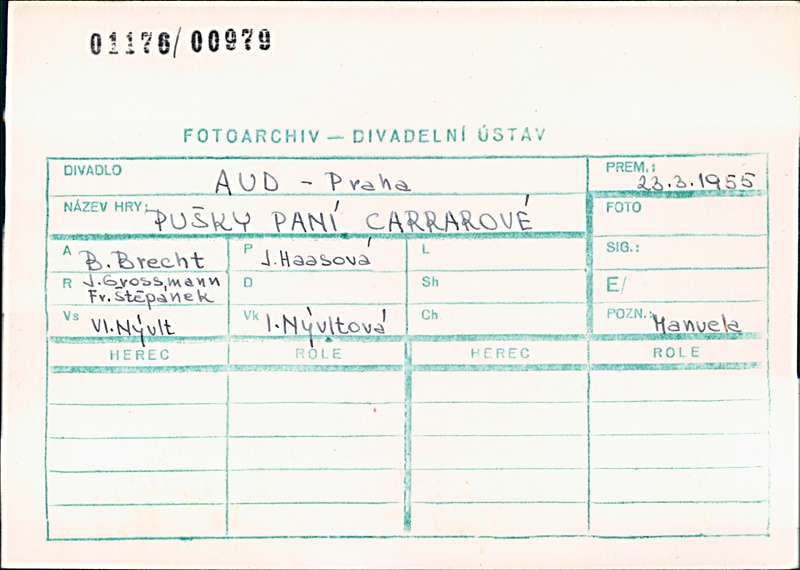 01176/00979
FOTOARCHIV — DIVADELNÍ ÚSTAV
DIVADLO AUD - Praha PREM.: 23.3.1955
NÁZEV HRY: PUŠKY PANÍ CARRAROVÉ FOTO
A B. Brecht P J. Haasová L SIG.:
R J. Grossmann Fr. Štěpánek D Sh E/
Vs Vl. Nývlt Vk I. Nývltová Ch POZN.: Manuela
HEREC ROLE HEREC ROLE